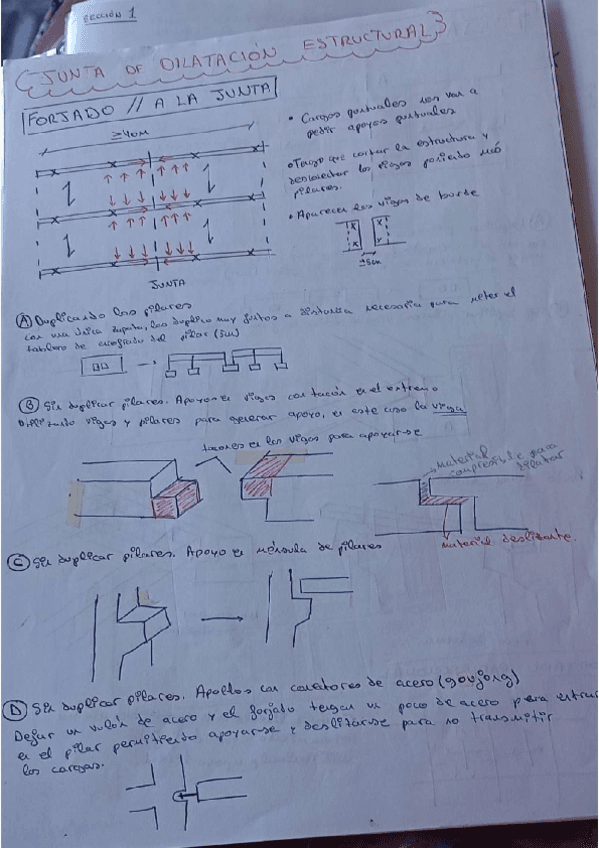 SECCIÓN 1
JUNTA DE DILATACIÓN ESTRUCTURAL
FORJADO // A LA JUNTA
≥40M
JUNTA
• Cargas puntuales nos van a
pedir apoyos puntuales
• Tengo que cortar la estructura y
desconectar los vigas poniendo
pilares.
• Aparecen las vigas de borde
(A) Duplicando los pilares
con una única zapata, los duplico muy juntos a distancia necesaria para meter el
tablero de encofrado del pilar (5cm)
(B) Sin duplicar pilares. Apoyo en vigas con tacón en el extremo
vigas y pilares para generar apoyo, en este caso la viga
tacones en las vigas para apoyarse
Material
compresible para
dilatar
Material deslizante.
(C) Sin duplicar pilares. Apoyo en ménsula de pilares
(D) Sin duplicar pilares. Apoyos con conectores de acero (goujong)
Dejar un vulón de acero y el forjado tengan un poco de acero para entrar
en el pilar permitiendo apoyarse y deslizarse para no transmitir
las cargas.